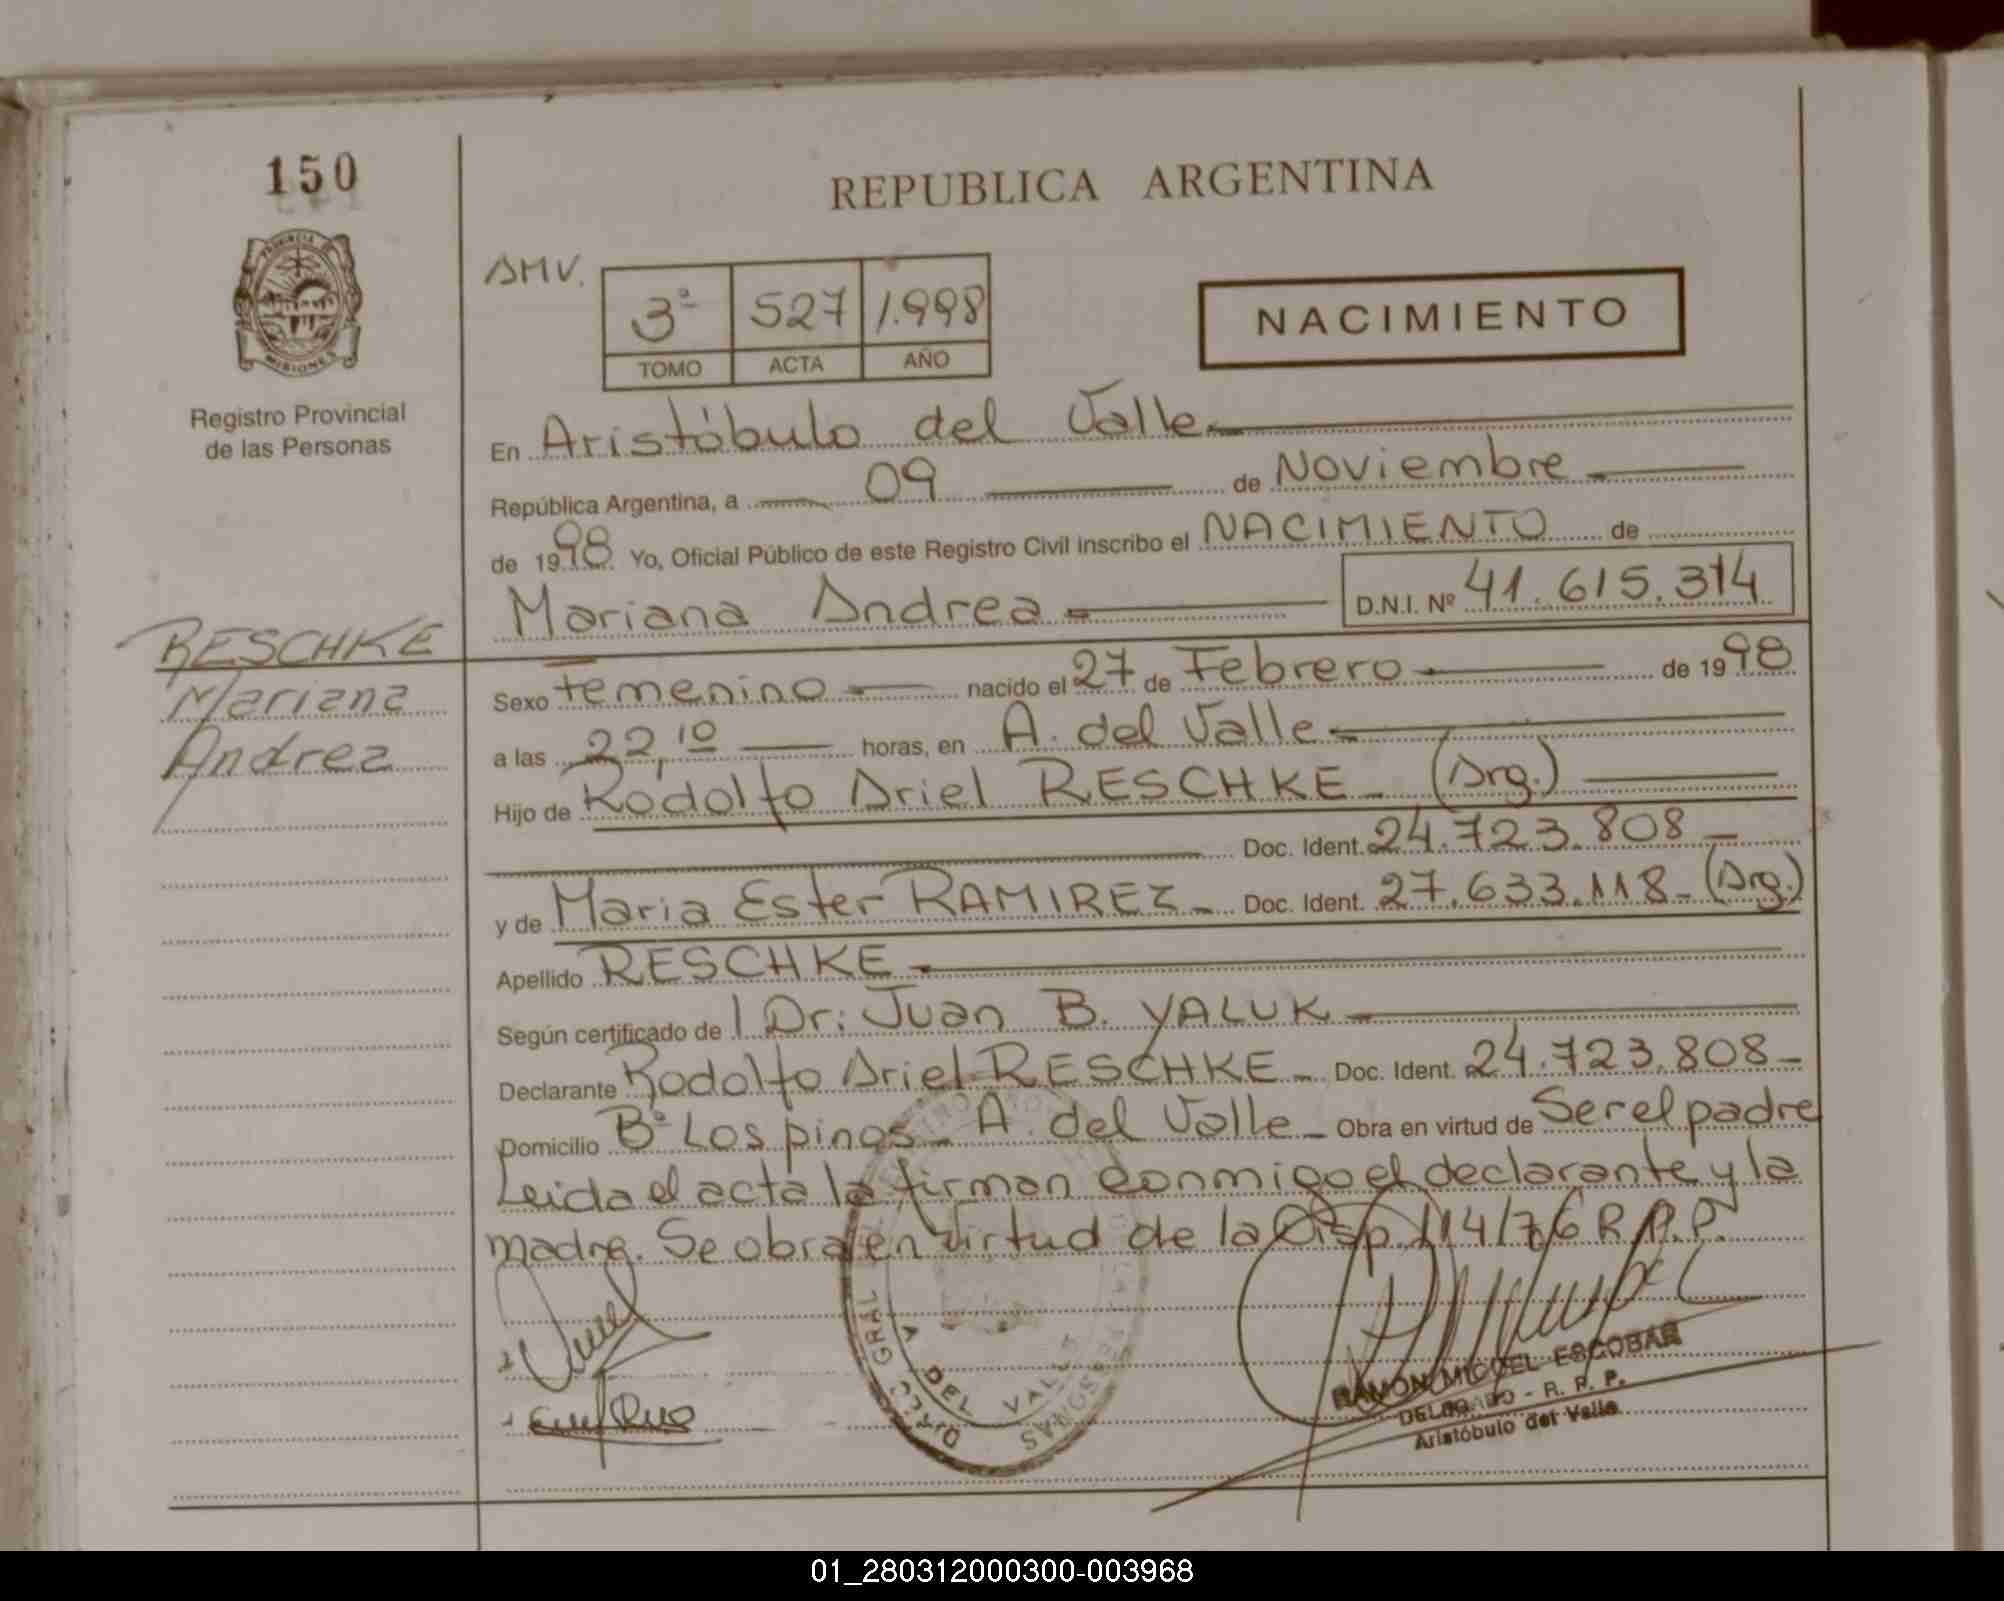 150
REPUBLICA ARGENTINA
PROVINCIA DE
MISIONES
Registro Provincial
de las Personas
AMV.
3ª 527 1.998
TOMO ACTA AÑO
NACIMIENTO
En Aristóbulo del Valle
República Argentina, a 09 de Noviembre
de 1998 Yo, Oficial Público de este Registro Civil inscribo el NACIMIENTO de
Mariana Andrea D.N.I. Nº 41.615.314
RESCHKE
Mariana
Andrea
Sexo Femenino nacido el 27 de Febrero de 1998
a las 22,10 horas, en A. del Valle
Hijo de Rodolfo Ariel RESCHKE (Arg.)
Doc. Ident. 24.723.808
y de Maria Ester RAMIREZ Doc. Ident. 27.633.118 (Arg.)
Apellido RESCHKE
Según certificado de l Dr: Juan B. YALUK
Declarante Rodolfo Ariel RESCHKE Doc. Ident. 24.723.808
Domicilio Bº Los pinos A. del Valle Obra en virtud de Ser el padre
Leida el acta la firman conmigo el declarante y la
madre. Se obra en virtud de la Disp. 114/76 R.P.P.
GRAL
A DEL VALLE
PERSONAS
RAMON MIGUEL ESCOBAR
DELEGADO - R. P. P.
Aristóbulo del Valle
01_280312000300-003968